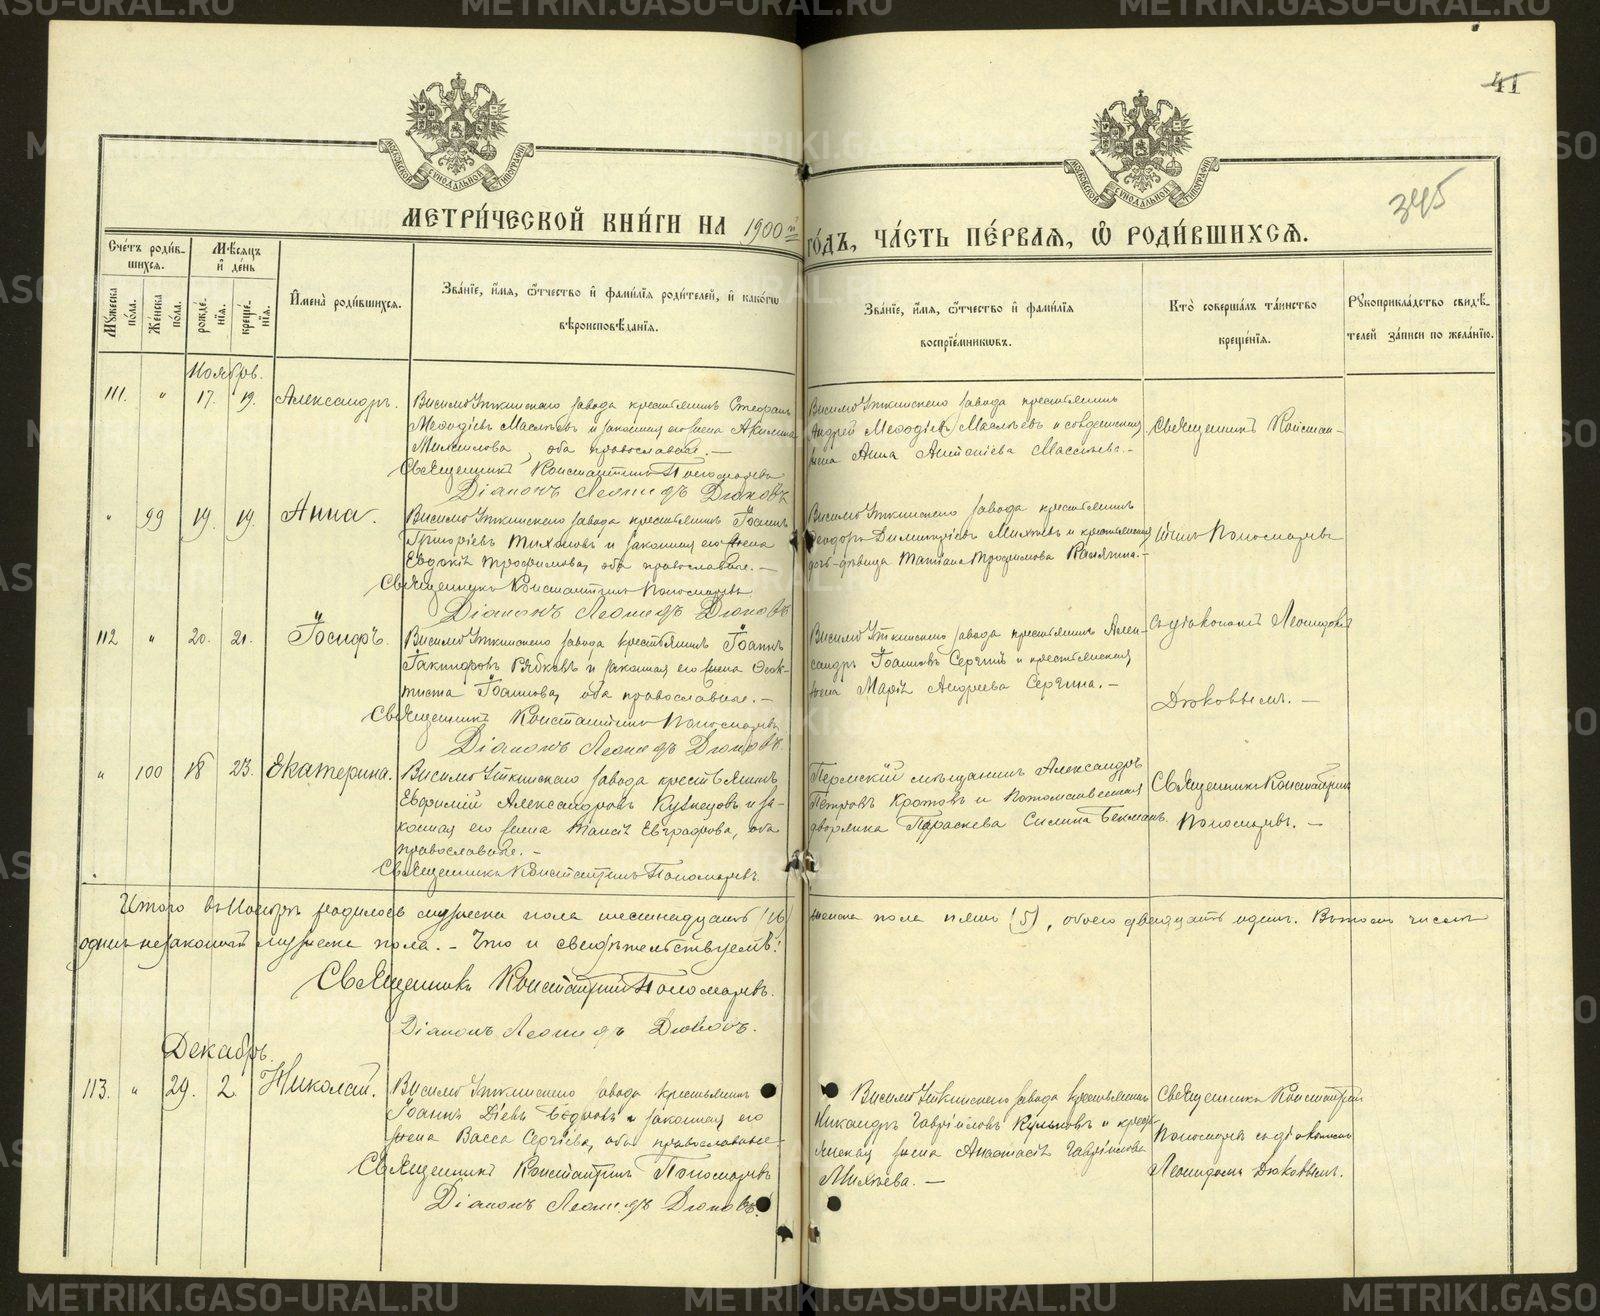 METRIKI.GASO-URAL.RU
41
МОСКОВСКОЙ СѴНОДАЛЬНОЙ ТИПОГРАФІИ
МОСКОВСКОЙ СѴНОДАЛЬНОЙ ТИПОГРАФІИ
345
МЕТРИ́ЧЕСКОЙ КНИ́ГИ НА 1900й ГО́ДЪ, ЧА́СТЬ ПЕ́РВАЯ, Ѡ҆ РОДИ́ВШИХСЯ.
Сче́тъ роди́в-
шихся.
Мꙋ́жеска по́ла.
Же́нска по́ла.
Мѣ́сяцъ
и҆ де́нь
рожде́-
нїя.
креще́-
нїя.
И҆мена̀ роди́вшихся.
Зва́нїе, и҆́мя, ѻ҆́тчество и҆ фами́лїя роди́телей, и҆ како́гѡ
вѣроисповѣ́данїя.
Зва́нїе, и҆́мя, ѻ҆́тчество и҆ фами́лїя
воспрїе́мникѡвъ.
Кто̀ соверша́лъ та́инство
креще́нїя.
Рꙋкоприкла́дство свидѣ́-
телей за́писи по жела́нїю.
Ноябрь.
111. " 17. 19. Александръ.
Висимо Уткинскаго завода крестьянинъ Стефанъ
Меѳодіевъ Масльевъ и законная его жена Акилина
оба православные. —
Священникъ Константинъ Пономаревъ
Діаконъ Леонидъ Дюковъ
Висимо Уткинскаго завода крестьянинъ
Андрей Меѳодіев Масльевъ и
жена Анна
Священникъ Констан-
" 99 19. 19. Анна.
Висимо Уткинскаго завода крестьянинъ Іоаннъ
Григоріевъ Тихоновъ и законная его жена
Евдокія Трофимова, оба православные. —
Священникъ Константинъ Пономаревъ
Діаконъ Леонидъ Дюковъ
Висимо Уткинскаго завода крестьянинъ
Ѳеодоръ Димитріевъ Михѣевъ и крестьянская
дочь-дѣвица Татіана Трофимова
тинъ Пономаревъ
112 " 20. 21. Іосифъ.
Висимо Уткинскаго завода крестьянинъ Іоаннъ
Іакинфовъ Рябковъ и законная его жена Ѳеок-
тиста Іоаннова, оба православные. —
Священникъ Константинъ Пономаревъ
Діаконъ Леонидъ Дюковъ
Висимо Уткинскаго завода крестьянинъ Алек-
сандръ Іоанновъ Сергинъ и крестьянская
жена Марія Андреева Сергина. —
съ діакономъ Леонидомъ
Дюковымъ. —
" 100 18 23. Екатерина.
Висимо Уткинскаго завода крестьянинъ
Евфимій Александровъ Кузнецовъ и за-
конная его жена Таисія Евграфова, оба
православные. —
Священникъ Константинъ Пономаревъ.
Пермскій мѣщанинъ Александръ
Петровъ Кротовъ и потомственная
дворянка Параскева Силина Бекманъ.
Священникъ Константинъ
Пономаревъ. —
Итого въ Ноябрѣ родилось мужеска пола шестнадцать (16) женска пола пять (5), обоего двадцать одинъ. Въ томъ числѣ
одинъ незаконный мужеска пола. — Что и свидѣтельствуемъ:
Священникъ Константинъ Пономаревъ.
Діаконъ Леонидъ Дюковъ.
Декабрь.
113. " 29. 2. Николай.
Висимо Уткинскаго завода крестьянинъ
Іоаннъ и законная его
жена Васса Сергіева, оба православные
Священникъ Константинъ Пономаревъ
Діаконъ Леонидъ Дюковъ.
Висимо Уткинскаго завода крестьянинъ
Никандръ Гавріиловъ Кульковъ и кресть-
янская жена Анастасія Гавріилова
Михѣева. —
Священникъ Константинъ
Пономаревъ съ діакономъ
Леонидомъ Дюковымъ.
METRIKI.GASO-URAL.RU